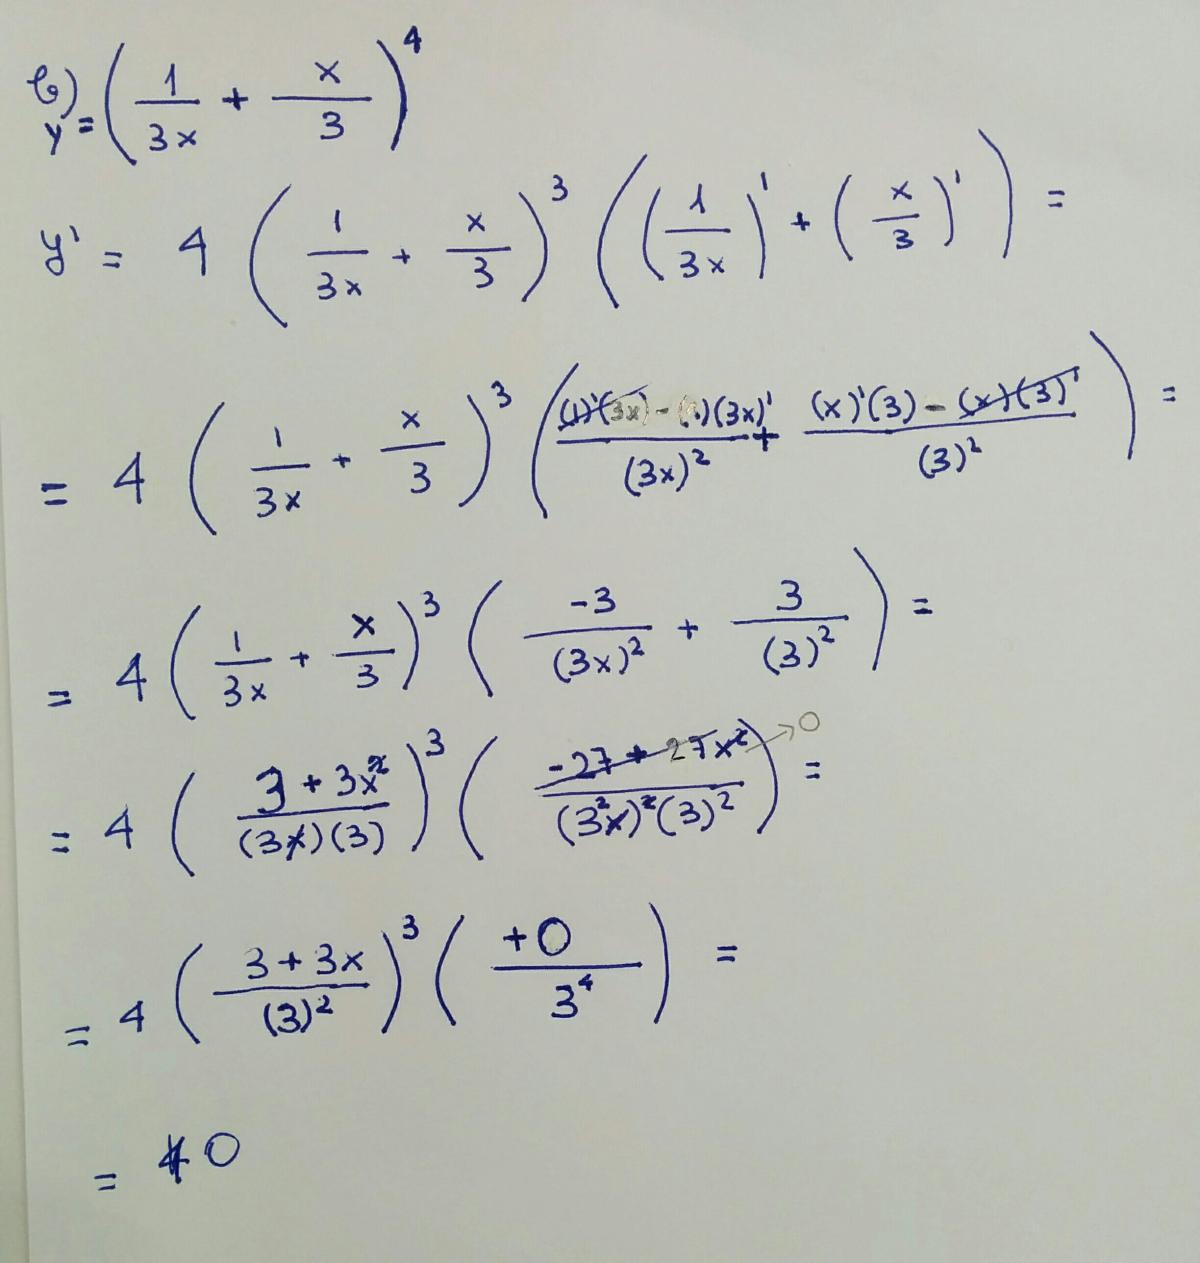 b) y = (1/3x + x/3)^4
y' = 4 (1/3x + x/3)^3 ((1/3x)' + (x/3)') =
= 4 (1/3x + x/3)^3 (((1)'(3x) - (1)(3x)')/(3x)^2 + ((x)'(3) - (x)(3)')/(3)^2) =
= 4 (1/3x + x/3)^3 (-3/(3x)^2 + 3/(3)^2) =
= 4 ((3 + 3x^2)/((3x)(3)))^3 ((-27 + 27x^2)/((3^2x)^2(3)^2)) → 0 =
= 4 ((3 + 3x)/(3)^2)^3 (+0/3^4) =
= 0